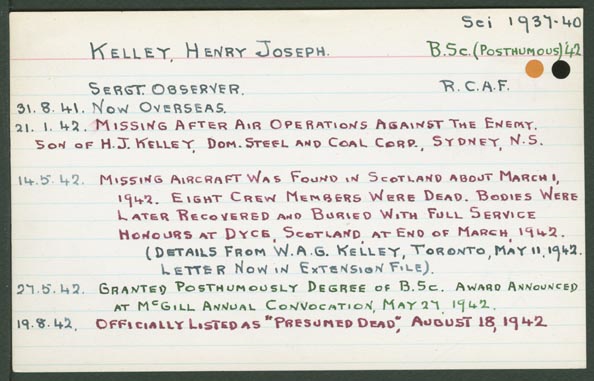 Sci 1937-40
KELLEY, HENRY JOSEPH. B.Sc. (POSTHUMOUS) '42
SERGT. OBSERVER. R.C.A.F.
31.8.41. NOW OVERSEAS.
21.1.42. MISSING AFTER AIR OPERATIONS AGAINST THE ENEMY.
SON OF H.J. KELLEY, DOM. STEEL AND COAL CORP., SYDNEY, N.S.
14.5.42. MISSING AIRCRAFT WAS FOUND IN SCOTLAND ABOUT MARCH 1,
1942. EIGHT CREW MEMBERS WERE DEAD. BODIES WERE
LATER RECOVERED AND BURIED WITH FULL SERVICE
HONOURS AT DYCE, SCOTLAND, AT END OF MARCH, 1942.
(DETAILS FROM W.A.G. KELLEY, TORONTO, MAY 11, 1942.
LETTER NOW IN EXTENSION FILE).
27.5.42. GRANTED POSTHUMOUSLY DEGREE OF B.Sc. AWARD ANNOUNCED
AT McGILL ANNUAL CONVOCATION, MAY 27, 1942.
19.8.42. OFFICIALLY LISTED AS "PRESUMED DEAD", AUGUST 18, 1942